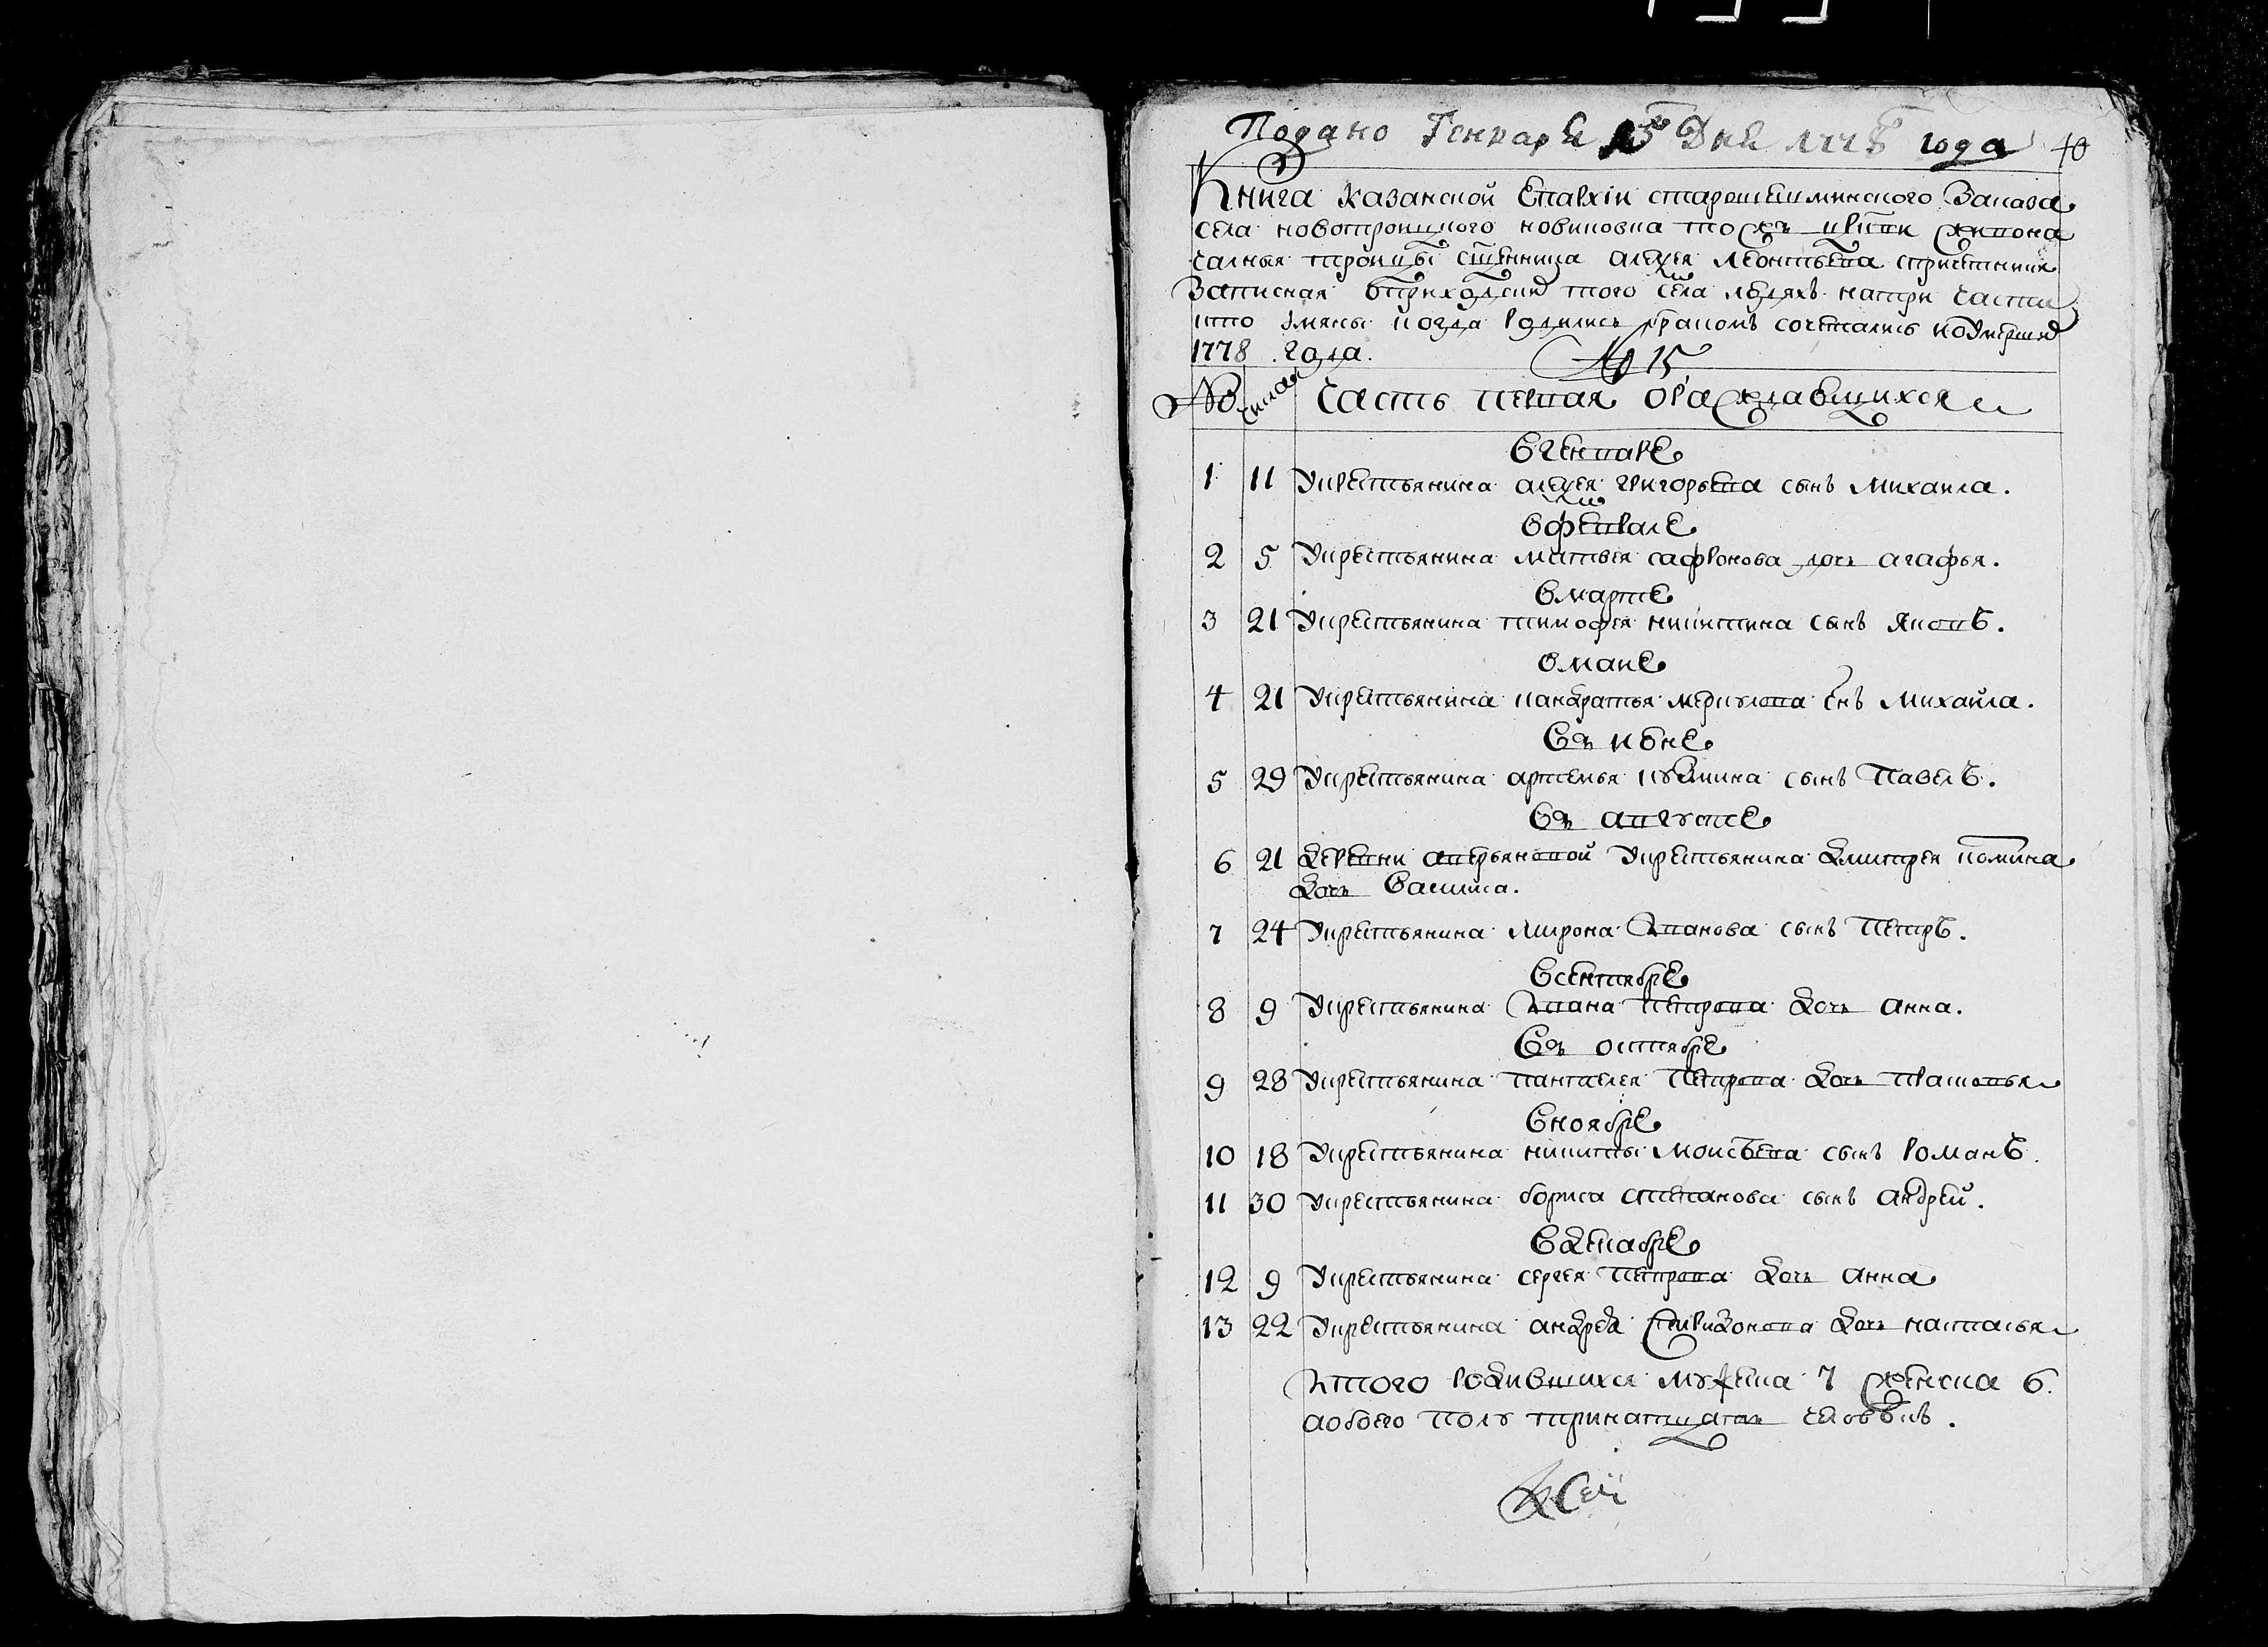 Подано Генваря 15го Дня 1778 года 40
Книга Казанской Епархіи старошешминского Заказа
села новотроицкого новиковка тожъ церкви живона
чалныя троицы сщенника алеѯея леонтьева спричетники
Записная оприходскихъ того села людяхъ натри части
кто имяны когда родились бракомъ сочетались ипомерших
1778 года. № 15
№ числа часть первая ораждающихся
вгенваре
1 11 Укрестьянина алеѯея григорьева сынъ михаила.
вфеврале
2 5 Укрестьянина матвея сафронова дочь агафья.
вмарте
3 21 Укрестьянина тимофея никитина сынъ яковъ.
вмаие
4 21 Укрестьянина панкратья меркулова снъ михайла.
въ июне
5 29 Укрестьянина артемья сынъ Павелъ.
въ августе
6 21 деревни аверьяновой Укрестьянина дмитрея фомина
дочь василиса.
7 24 Укрестьянина мирона иванова сынъ петръ.
всентябре
8 9 Укрестьянина ивана петрова дочь анна.
въ октябре
9 28 Укрестьянина пантелея петрова дочь прасковья
вноябре
10 18 Укрестьянина никиты моисѣева сынъ романъ.
11 30 Укрестьянина бориса степанова сынъ андрей.
вдекабре
12 9 Укрестьянина сергея петрова дочь анна
13 22 Укрестьянина андрея спиридонова дочь наталья
итого родившихся мужеска 7 женска 6.
аобоего полу тринатцать человѣкъ.